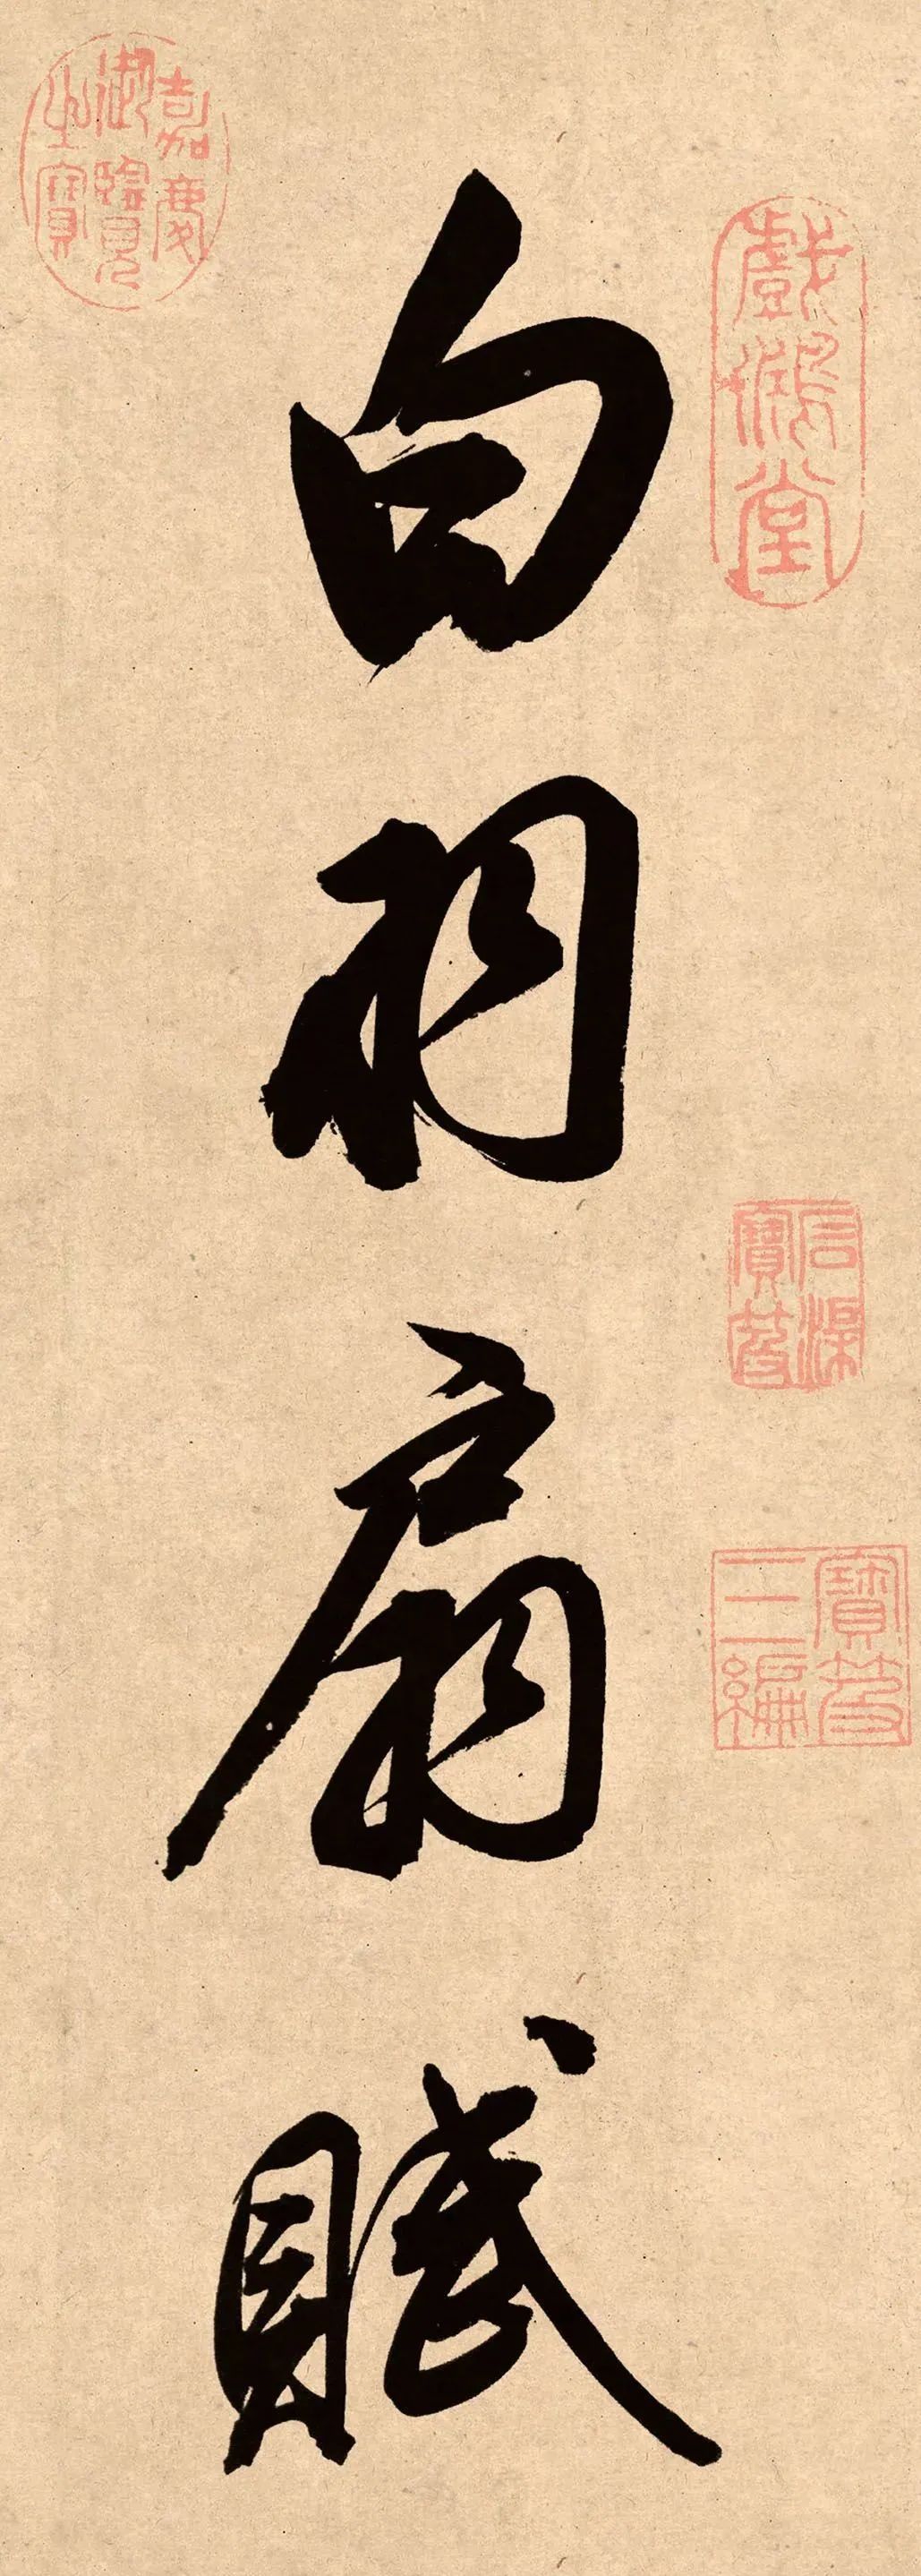 戲鴻堂
石渠寶笈
寶笈三編
白羽扇賦
嘉慶御覽之寶